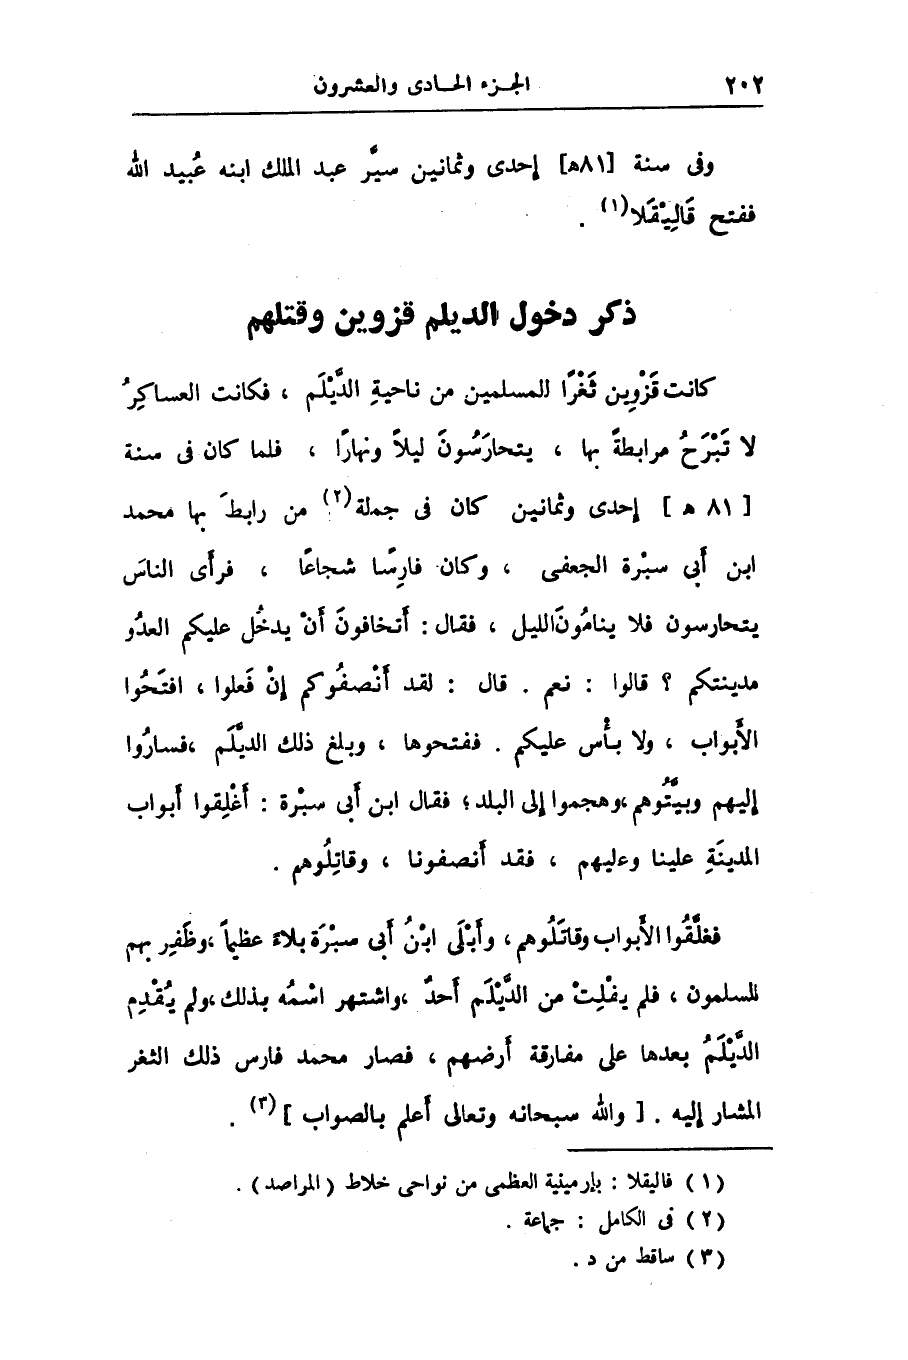 ٢٠٢ الجزء الحادى والعشرون
وفى سنة [٨١ھ] إحدى وثمانين سيَّر عبد الملك ابنه عُبيد الله
ففتح قَالِيْقَلا(١) .
ذكر دخول الديلم قزوين وقتلهم
كانت قَزْوِين ثَغْرًا للمسلمين من ناحيةِ الدَّيْلَم ، فكانت العساكِرُ
لا تَبْرَحُ مرابطةً بها ، يتحارَسُونَ ليلاً ونهارًا ، فلما كان فى سنة
[ ٨١ ھ ] إحدى وثمانين كان فى جملة(٢) من رابطَ بها محمد
ابن أَبى سبْرة الجعفى ، وكان فارِسًا شجاعًا ، فرأى الناسَ
يتحارسون فلا ينامُونَالليل ، فقال : أَتخافونَ أَنْ يدخُل عليكم العدُو
مدينتكم ؟ قالوا : نعم . قال : لقد أَنْصفُوكم إِنْ فَعلوا ، افتَحُوا
الأَبواب ، ولا بأْس عليكم . ففتحوها ، وبلغ ذلك الديَّلَم ،فسارُوا
إليهم وبيَّتُوهم ،وهجموا إلى البلد ؛ فقال ابن أَبى سبْرة : أَغْلِقوا أَبواب
المدينَةِ علينا وعليهم ، فقد أَنصفونا ، وقاتِلُوهم .
فغلَّقُوا الأَبواب وقاتَلُوهم ، وأَبْلَى ابْنُ أَبى سبْرَة بلاءً عظيماً ،وظَفِر بهم
المسلمون ، فلم يفْلِتْ من الدَّيْلَم أَحدٌ ،واشتهر اسْمُه بذلك ،ولم يُقْدِم
الدَّيْلَمُ بعدها على مفارقة أَرضهم ، فصار محمد فارس ذلك الثغر
المشار إليه . [ والله سبحانه وتعالى أَعلم بالصواب ](٣) .
(١) قاليقلا : بإرمينية العظمى من نواحى خلاط (المراصد) .
(٢) فى الكامل : جماعة .
(٣) ساقط من د .